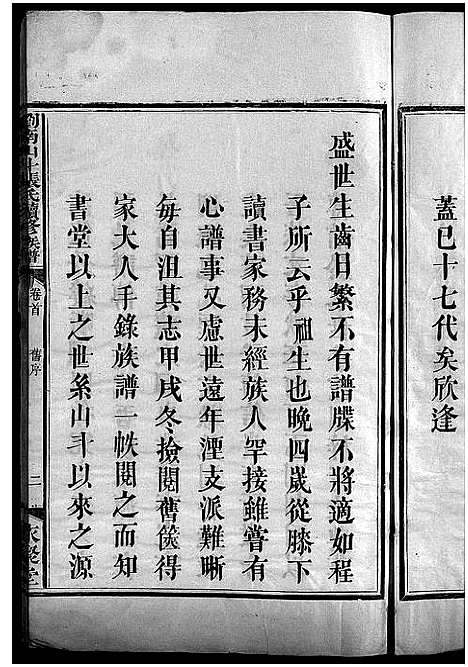 蓋已十七代矣欣逢
盛世生齒日繁不有譜牒不將適如程
子所云乎祖生也晚四歲從膝下
讀書家務未經族人罕接雖嘗有
心譜事又慮世遠年湮支派難晰
每自沮其志甲戌冬撿閱舊篋得
家大人手錄族譜一帙閱之而知
書堂以上之世系山斗以來之源
山斗張氏續修族譜
卷首
舊序
二